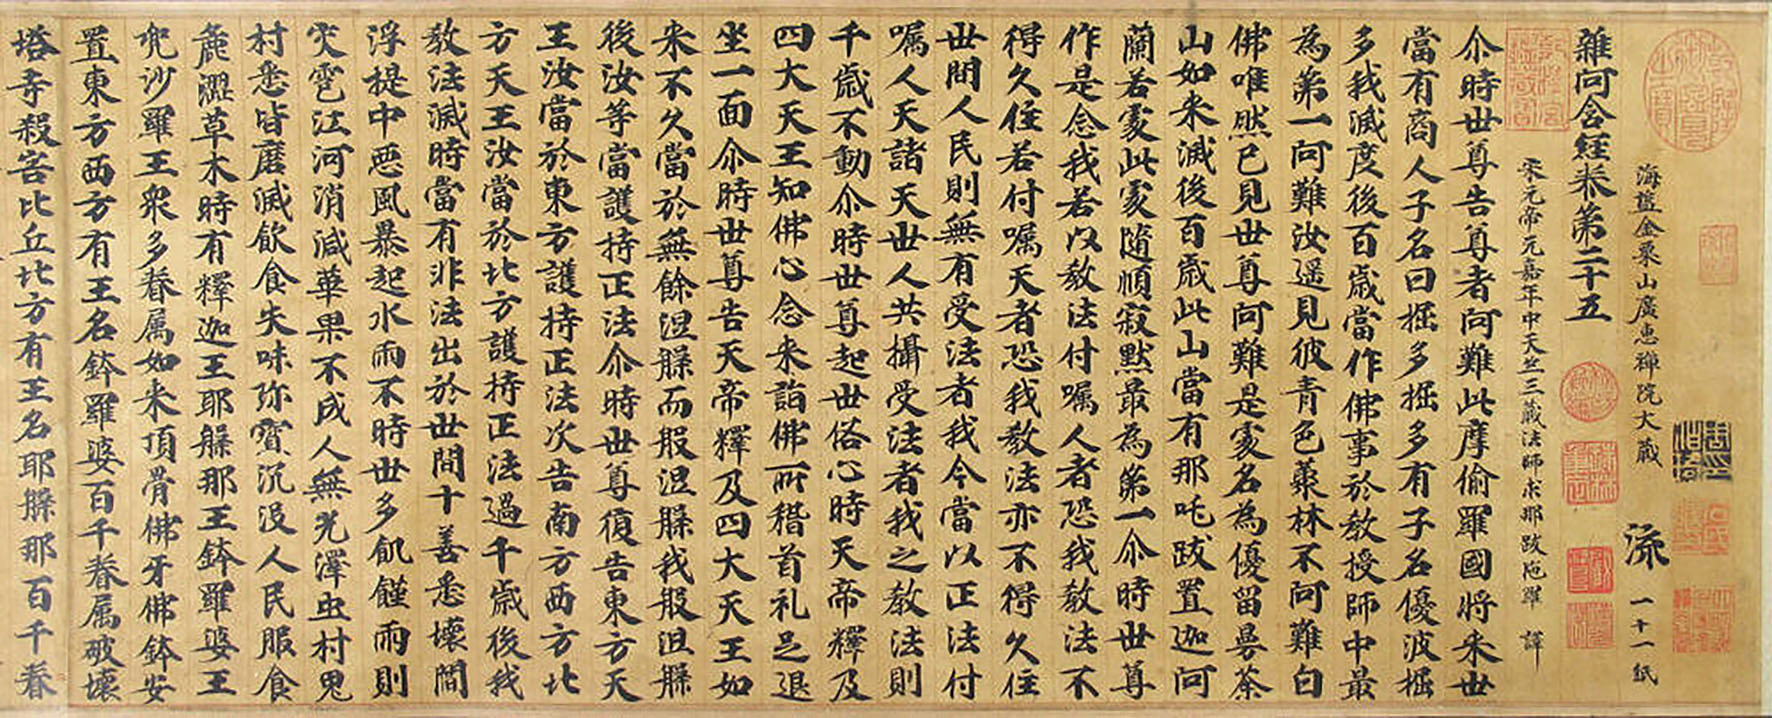 海鹽金粟山廣惠禪院大藏 流 一十一紙
雜阿含經卷第二十五
宋元帝元嘉年中天竺三藏法師求那跋陁羅 譯
尒時世尊告尊者阿難此摩偷羅國將来世
當有商人子名曰掘多掘多有子名優波掘
多我滅度後百歲當作佛事於教授師中最
為第一阿難汝遥見彼青色藂林不阿難白
佛唯然已見世尊阿難是處名為優留曼荼
山如来滅後百歲此山當有那吒跋置迦阿
蘭若處此處隨順寂默最為第一尒時世尊
作是念我若以教法付囑人者恐我教法不
得久住若付囑天者恐我教法亦不得久住
世間人民則無有受法者我今當以正法付
囑人天諸天世人共攝受法者我之教法則
千歲不動尒時世尊起世俗心時天帝釋及
四大天王知佛心念来詣佛所稽首礼足退
坐一面尒時世尊告天帝釋及四大天王如
来不久當於無餘涅槃而般涅槃我般涅槃
後汝等當護持正法尒時世尊復告東方天
王汝當於東方護持正法次告南方西方北
方天王汝當於北方護持正法過千歲後我
教法滅時當有非法出於世間十善悉壞閻
浮提中惡風暴起水雨不時世多飢饉雨則
灾雹江河消滅華果不成人無光澤虫村鬼
村悉皆磨滅飲食失味弥寳沉没人民服食
麁澀草木時有釋迦王耶槃那王鉢羅婆王
兜沙羅王衆多眷属如来頂骨佛牙佛鉢安
置東方西方有王名鉢羅婆百千眷属破壞
塔寺殺害比丘北方有王名耶槃那百千眷